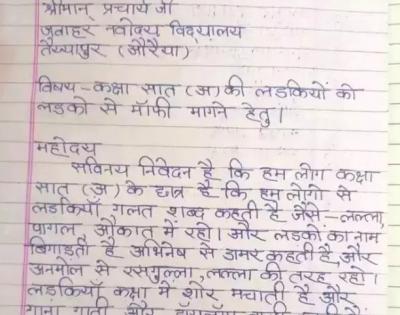 श्रीमान् प्रचार्य जी
जवाहर नवोदय विद्यालय
तैय्यापुर (औरैया)
विषय - कक्षा सात (अ) की लडकियों की
लडको से मॉफी मागने हेतु।
महोदय
सविनय निवेदन है कि हम लोग कक्षा
सात (अ) के छात्र है कि हम लोगो से
लडकियाँ गलत शब्द कहती है जैसे - लल्ला,
पागल, औकात में रहो। और लडकों का नाम
बिगाडती है अभिनेष से डामर कहती है और
अनमोल से रसगुल्ला, लल्ला की तरह रहो।
लडकियाँ कक्षा में शोर मचाती है और
गाना गाती और